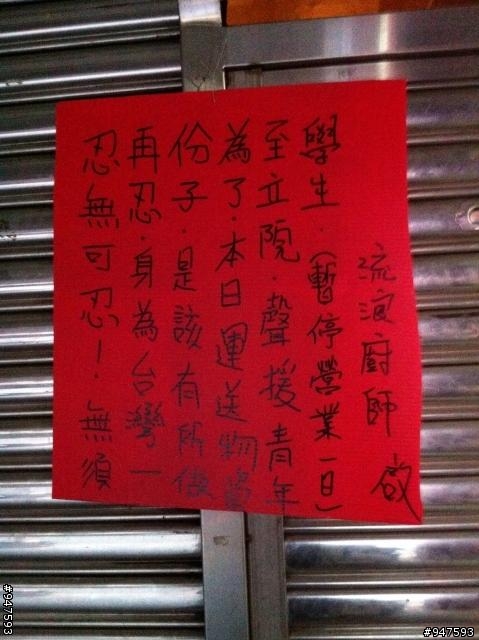 忍無可忍！無須
再忍．身為台灣一
份子．是該有所做
為了．本日運送物資
至立院．聲援青年
學生．(暫停營業一日)
流浪廚師 啟
#947593
#947593